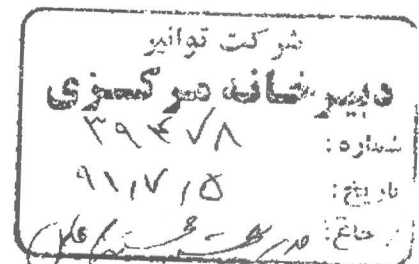 شرکت توانیر
دبیرخانه مرکزی
شماره: ۳۹۴۷۸
تاریخ: ۹۱/۷/۵